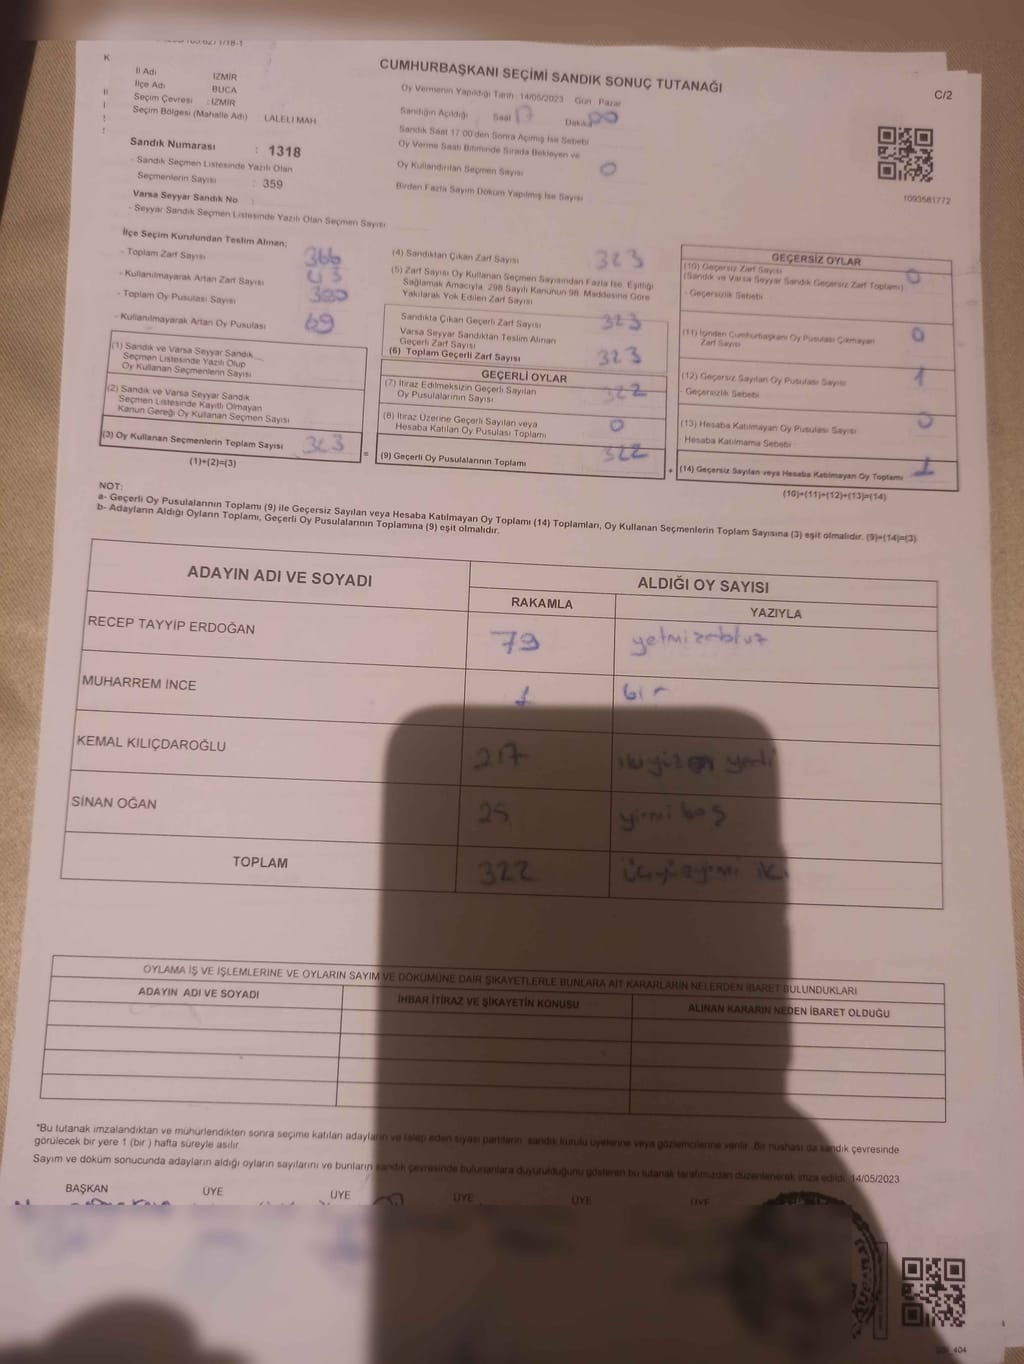 CUMHURBAŞKANI SEÇİMİ SANDIK SONUÇ TUTANAĞI
C/2
K
İl Adı IZMIR
İlçe Adı BUCA
Seçim Çevresi : IZMIR
Seçim Bölgesi (Mahalle Adı) LALELİ MAH
Sandık Numarası : 1318
- Sandık Seçmen Listesinde Yazılı Olan
Seçmenlerin Sayısı : 359
Varsa Seyyar Sandık No :
- Seyyar Sandık Seçmen Listesinde Yazılı Olan Seçmen Sayısı
Oy Vermenin Yapıldığı Tarih :14/05/2023 Gün Pazar
Sandığın Açıldığı Saat 17 Dakika 00
Sandık Saat 17.00'den Sonra Açmış İse Sebebi
Oy Verme Saati Bitiminde Sırada Bekleyen ve
Oy Kullandırılan Seçmen Sayısı 0
Birden Fazla Sayım Döküm Yapılmış İse Sayısı
1093581772
İlçe Seçim Kurulundan Teslim Alınan;
- Toplam Zarf Sayısı 366
- Kullanılmayarak Artan Zarf Sayısı 43
- Toplam Oy Pusulası Sayısı
- Kullanılmayarak Artan Oy Pusulası 69
(1) Sandık ve Varsa Seyyar Sandık
Seçmen Listesinde Yazılı Olup
Oy Kullanan Seçmenlerin Sayısı
(2) Sandık ve Varsa Seyyar Sandık
Seçmen Listesinde Kayıtlı Olmayan
Kanun Gereği Oy Kullanan Seçmen Sayısı
(3) Oy Kullanan Seçmenlerin Toplam Sayısı 323
(1)+(2)=(3)
=
(4) Sandıktan Çıkan Zarf Sayısı 323
(5) Zarf Sayısı Oy Kullanan Seçmen Sayısından Fazla İse, Eşitliği
Sağlamak Amacıyla, 298 Sayılı Kanunun 98. Maddesine Göre
Yakılarak Yok Edilen Zarf Sayısı
Sandıkta Çıkan Geçerli Zarf Sayısı 323
Varsa Seyyar Sandıktan Teslim Alınan
Geçerli Zarf Sayısı
(6) Toplam Geçerli Zarf Sayısı 323
GEÇERLİ OYLAR
(7) İtiraz Edilmeksizin Geçerli Sayılan
Oy Pusulalarının Sayısı 322
(8) İtiraz Üzerine Geçerli Sayılan veya
Hesaba Katılan Oy Pusulası Toplamı 0
(9) Geçerli Oy Pusulalarının Toplamı 322
+
GEÇERSİZ OYLAR
(10) Geçersiz Zarf Sayısı 0
(Sandık ve Varsa Seyyar Sandık Geçersiz Zarf Toplamı)
- Geçersizlik Sebebi
(11) İçinden Cumhurbaşkanı Oy Pusulası Çıkmayan
Zarf Sayısı 0
(12) Geçersiz Sayılan Oy Pusulası Sayısı 1
- Geçersizlik Sebebi
(13) Hesaba Katılmayan Oy Pusulası Sayısı 0
Hesaba Katılmama Sebebi
(14) Geçersiz Sayılan veya Hesaba Katılmayan Oy Toplamı 1
(10)+(11)+(12)+(13)=(14)
NOT:
a- Geçerli Oy Pusulalarının Toplamı (9) ile Geçersiz Sayılan veya Hesaba Katılmayan Oy Toplamı (14) Toplamları, Oy Kullanan Seçmenlerin Toplam Sayısına (3) eşit olmalıdır. (9)+(14)=(3)
b- Adayların Aldığı Oyların Toplamı, Geçerli Oy Pusulalarının Toplamına (9) eşit olmalıdır.
ADAYIN ADI VE SOYADI ALDIĞI OY SAYISI
RAKAMLA YAZIYLA
RECEP TAYYİP ERDOĞAN 79
MUHARREM İNCE 1 bir
KEMAL KILIÇDAROĞLU 217 ikiyüz on yedi
SİNAN OĞAN 25 yirmi beş
TOPLAM 322 üçyüzyirmi iki
OYLAMA İŞ VE İŞLEMLERİNE VE OYLARIN SAYIM VE DÖKÜMÜNE DAİR ŞİKAYETLERLE BUNLARA AİT KARARLARIN NELERDEN İBARET BULUNDUKLARI
ADAYIN ADI VE SOYADI İHBAR İTİRAZ VE ŞİKAYETİN KONUSU ALINAN KARARIN NEDEN İBARET OLDUĞU
*Bu tutanak imzalandıktan ve mühürlendikten sonra seçime katılan adayların ve talep eden siyasi partilerin sandık kurulu üyelerine veya gözlemcilerine verilir. Bir nüshası da sandık çevresinde
görülecek bir yere 1 (bir ) hafta süreyle asılır.
Sayım ve döküm sonucunda adayların aldığı oyların sayılarını ve bunların sandık çevresinde bulunanlara duyurulduğunu gösteren bu tutanak tarafımızdan düzenlenerek imza edildi. 14/05/2023
BAŞKAN ÜYE ÜYE ÜYE ÜYE ÜYE